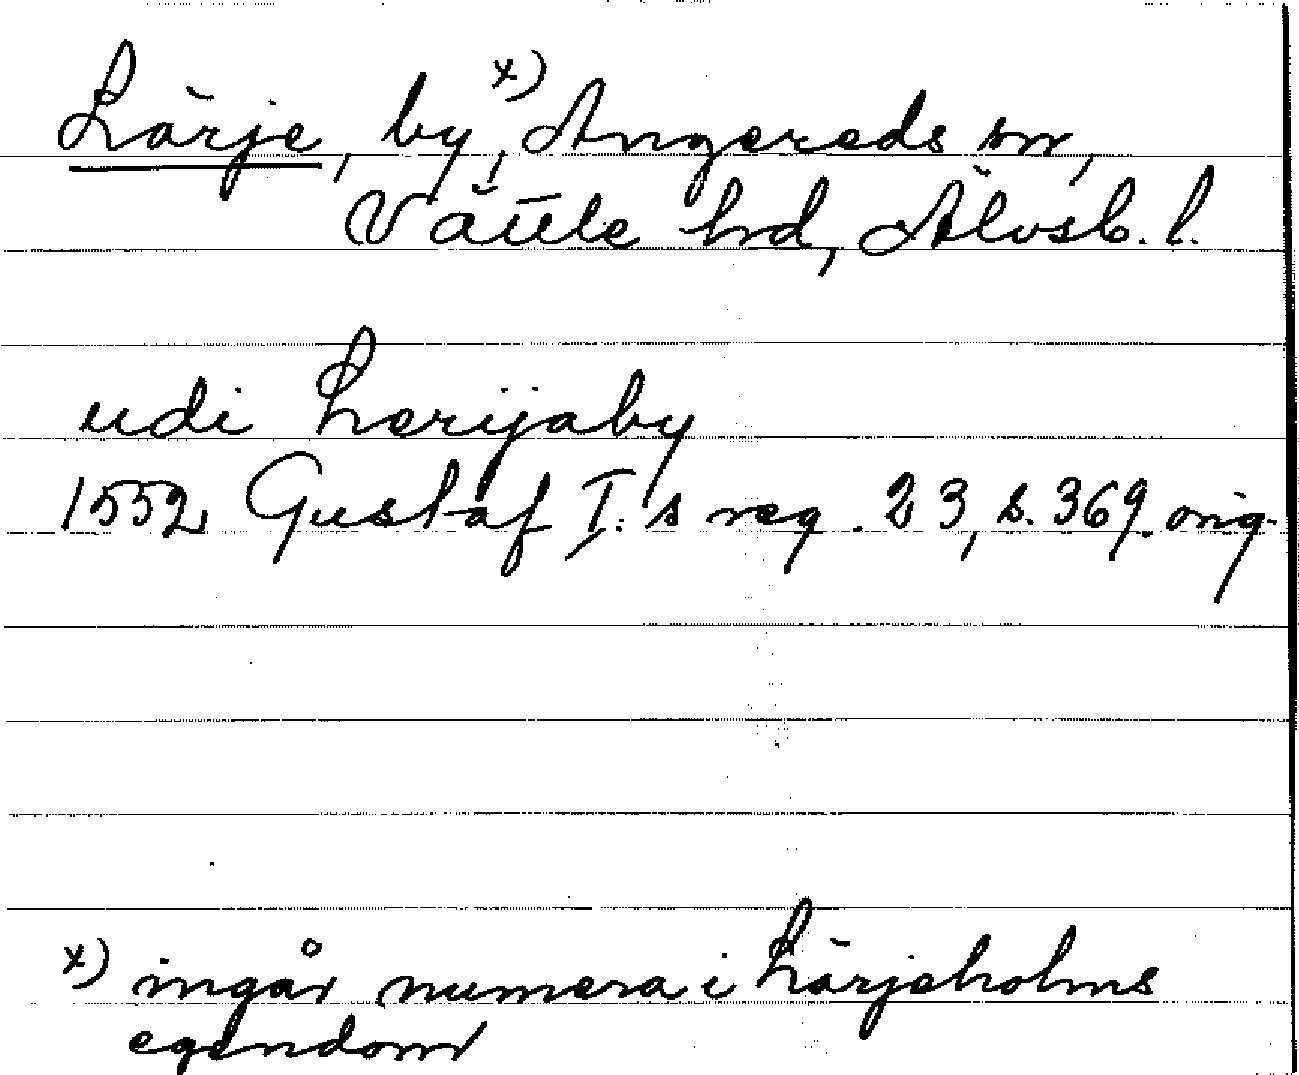 Lärje, by,x) Angereds sn,
Vättle hrd, Älvsb. l.
udi Lerijaby
1552 Gustaf I:s reg. 23, s. 369. orig.
x) ingår numera i Lärjeholms
egendom